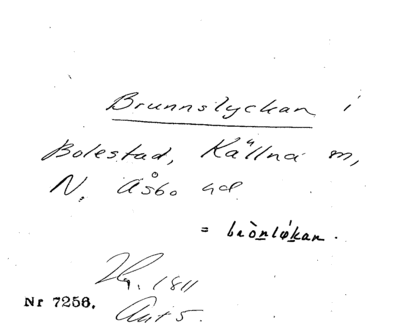 Brunnslyckan i
Bolestad, Källna m,
N. Åsbo hd
= bròn̲lǿk̲an.
Hy. 1811
Akt 5.
Nr 7256.